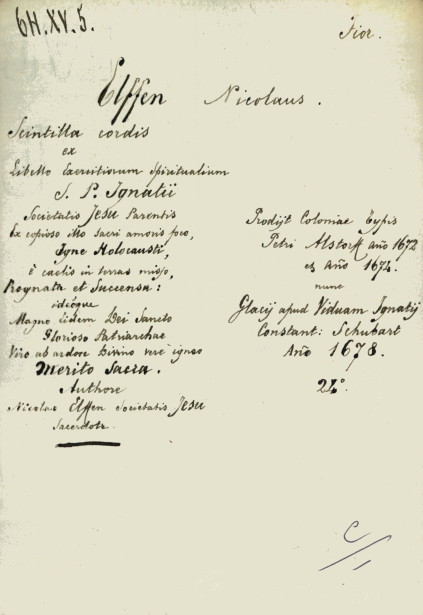 6H.XV.5.
Fior.
Elffen Nicolaus.
Scintilla cordis
ex
Libello Exercitiorum Spiritualium
S. P. Ignatii
Societatis Jesu Parentis
Ex copioso illo sacri amoris foco,
Igne Holocausti,
è caelis in terras misso,
Prognata et Succensa:
ideóque
Magno itidem Dei Sancto
Glorioso Patriarchae
Viro ab ardore Divino vere igneo
Merito Sacra.
Authore
Nicolao Elffen Societatis Jesu
Sacerdote.
Prodijt Coloniae Typis
Petri Alstorff año 1672
et Año 1674.
nunc
Glacij apud Viduam Ignatij
Constant: Schubart
Año 1678.
24°.